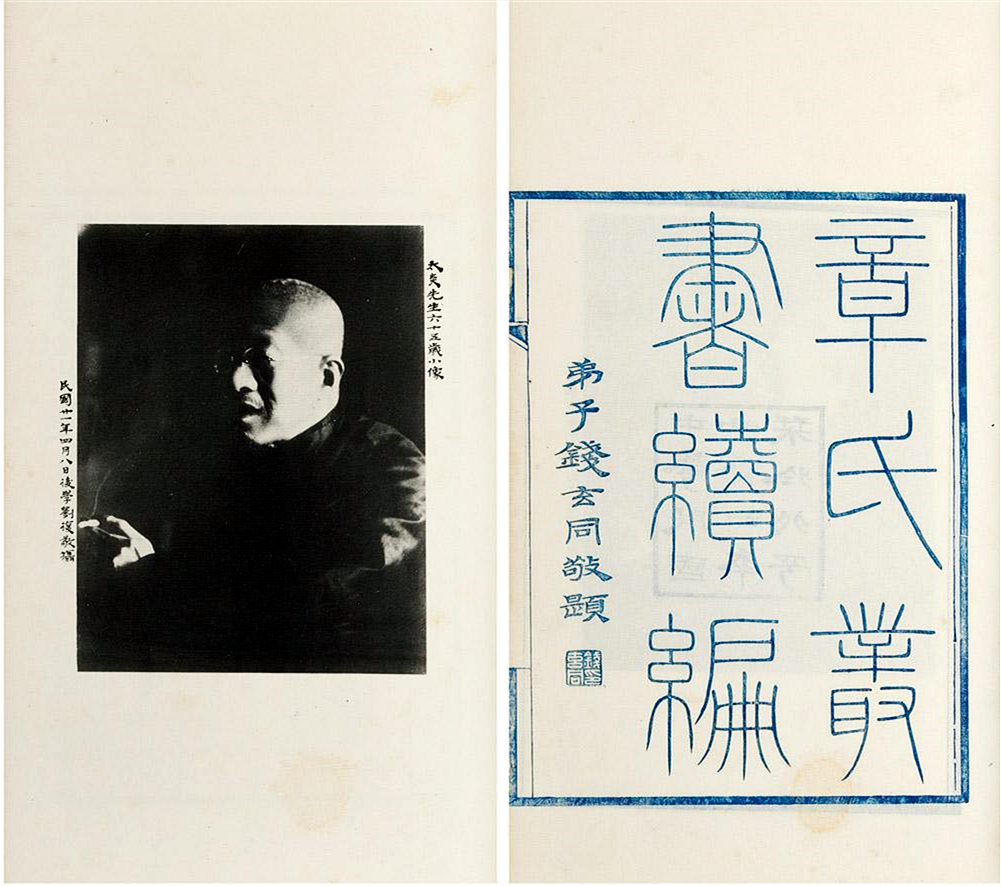 章氏叢
書續編
弟子錢玄同敬題
太炎先生六十五歲小像
民國廿一年四月八日後學劉復敬攝